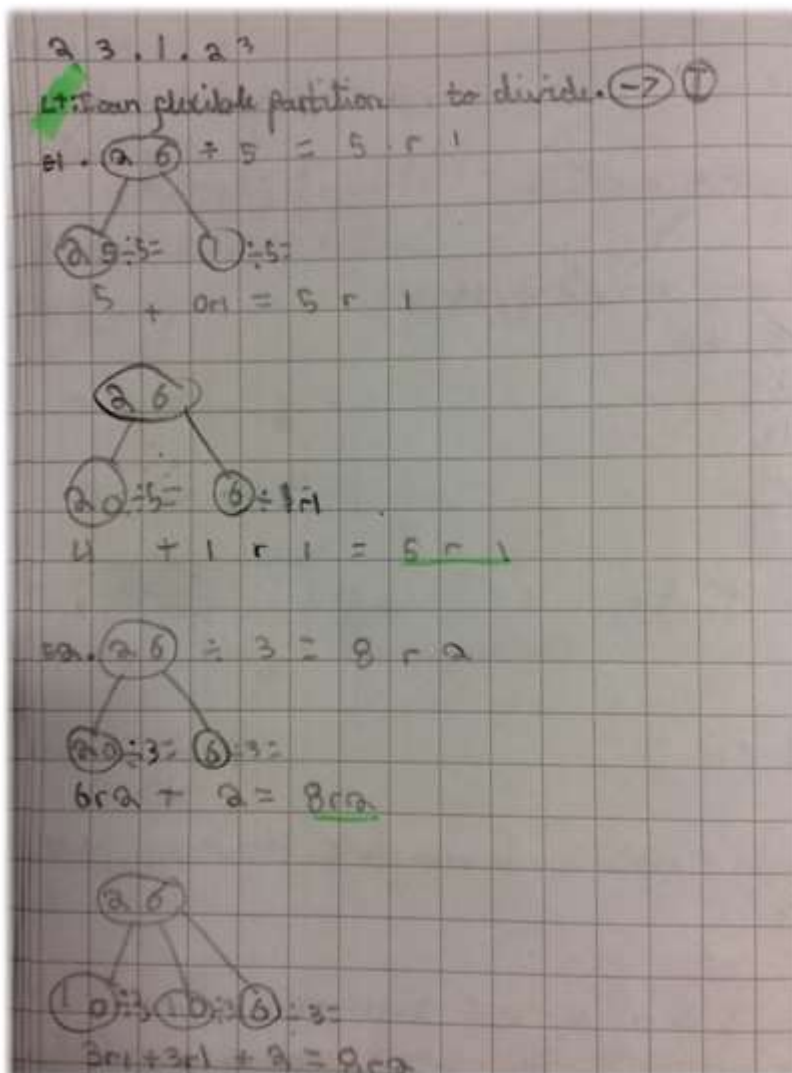 23.1.23
LT: I can flexible partition to divide. → I
E1. 26 ÷ 5 = 5 r 1
25÷5= 1÷5=
5 + 0r1 = 5 r 1
26
20÷5= 6÷
4 + 1 r 1 = 5 r 1
E2. 26 ÷ 3 = 8 r 2
20÷3= 6÷3=
6r2 + 2 = 8r2
26
10÷3 10÷3 6÷3=
3r1+3r1 + 2 = 8r2